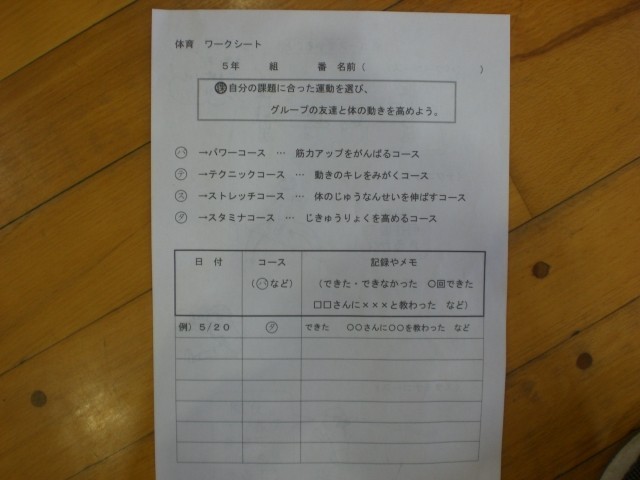 体育　ワークシート
５年　　組　　　番　名前（　　　　　　　　　）
自分の課題に合った運動を選び、
グループの友達と体の動きを高めよう。
㋩　→パワーコース　…　筋力アップをがんばるコース
㋢　→テクニックコース　…　動きのキレをみがくコース
㋜　→ストレッチコース　…　体のじゅうなんせいを伸ばすコース
→スタミナコース　…　じきゅうりょくを高めるコース
日　付　コース　記録やメモ
（など）　（できた・できなかった　〇回できた
□□さんに×××と教わった　など）
例）５/２０　できた　〇〇さんに〇〇を教わった　など